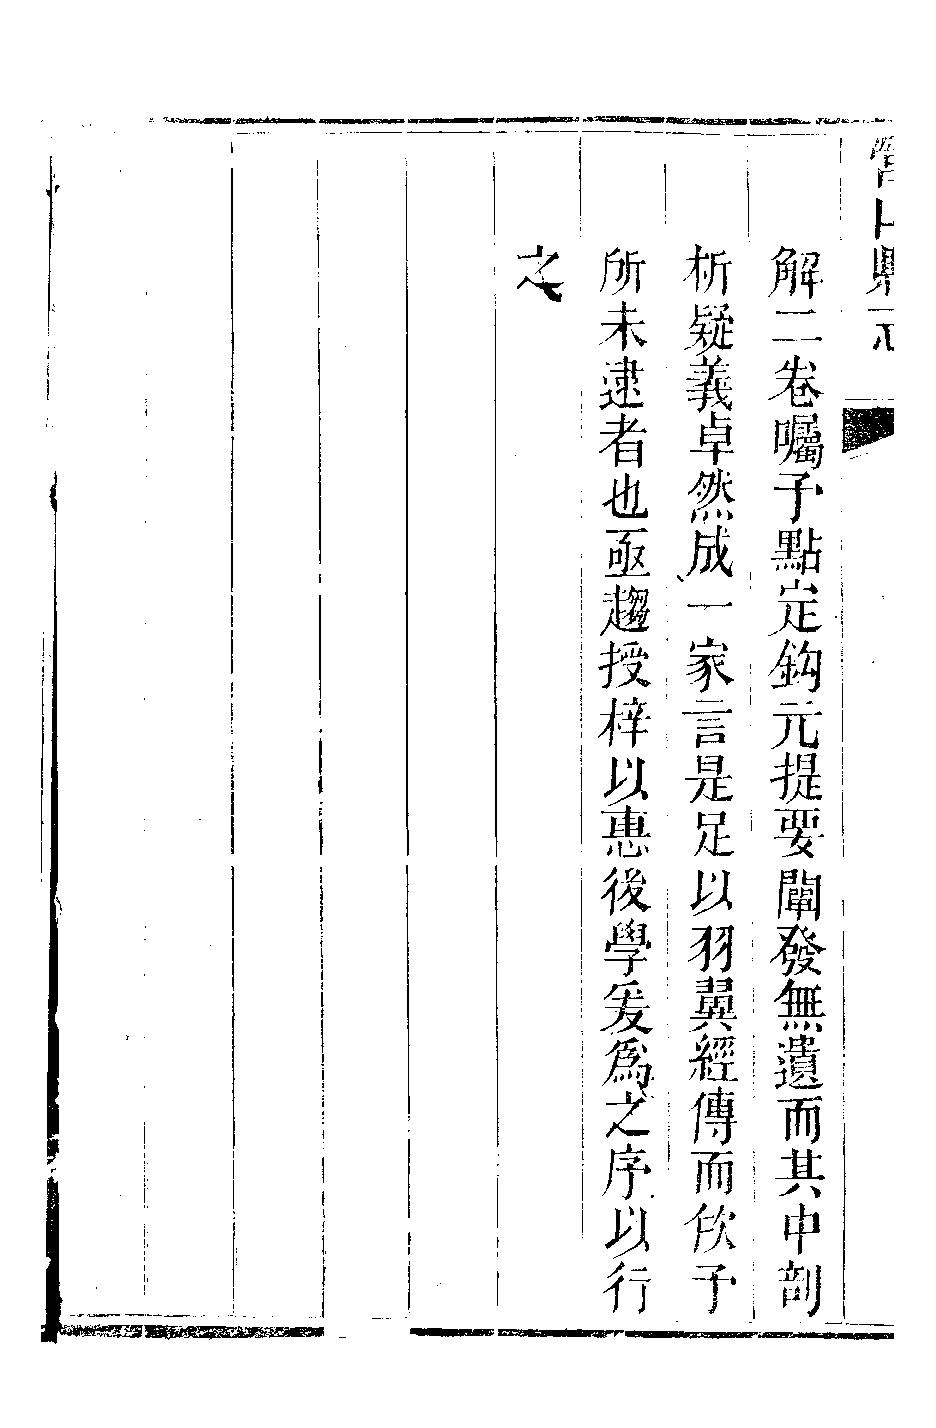 解二卷囑予點定鈎元提要闡發無遺而其中剖
析疑義卓然成一家言是足以羽翼經傳而佽予
所未逮者也亟趨授梓以惠後學爰爲之序以行
之